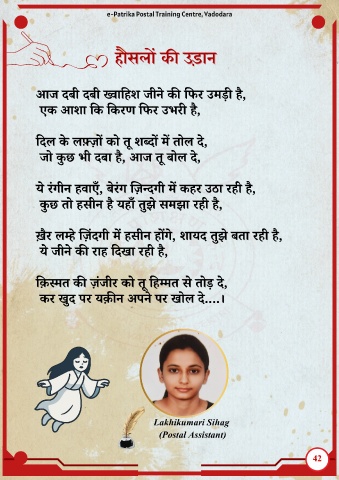 e-Patrika Postal Training Centre, Vadodara
हौसलों की उड़ान
आज दबी दबी ख्वाहिश जीने की फिर उमड़ी है,
एक आशा कि किरण फिर उभरी है,
दिल के लफ़्ज़ों को तू शब्दों में तोल दे,
जो कुछ भी दबा है, आज तू बोल दे,
ये रंगीन हवाएँ, बेरंग ज़िन्दगी में कहर उठा रही है,
कुछ तो हसीन है यहाँ तुझे समझा रही है,
ख़ैर लम्हे ज़िंदगी में हसीन होंगे, शायद तुझे बता रही है,
ये जीने की राह दिखा रही है,
क़िस्मत की ज़ंजीर को तू हिम्मत से तोड़ दे,
कर खुद पर यक़ीन अपने पर खोल दे....।
Lakhikumari Sihag
(Postal Assistant)
42